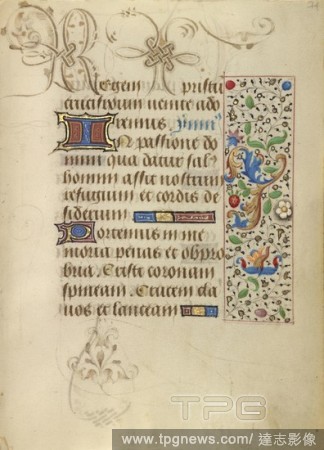 Regem pristu
crucifixum uenite ado
remus ymn
In passione do
mini qua datur sal
homini assit nostrum
refugium et cordis de
siderium
Portemus in me
moria penas et obpro
bria Criste coronam
spineam Crucem cla
uos et lanceam
TPG
www.tpgnews.com / 達志影像